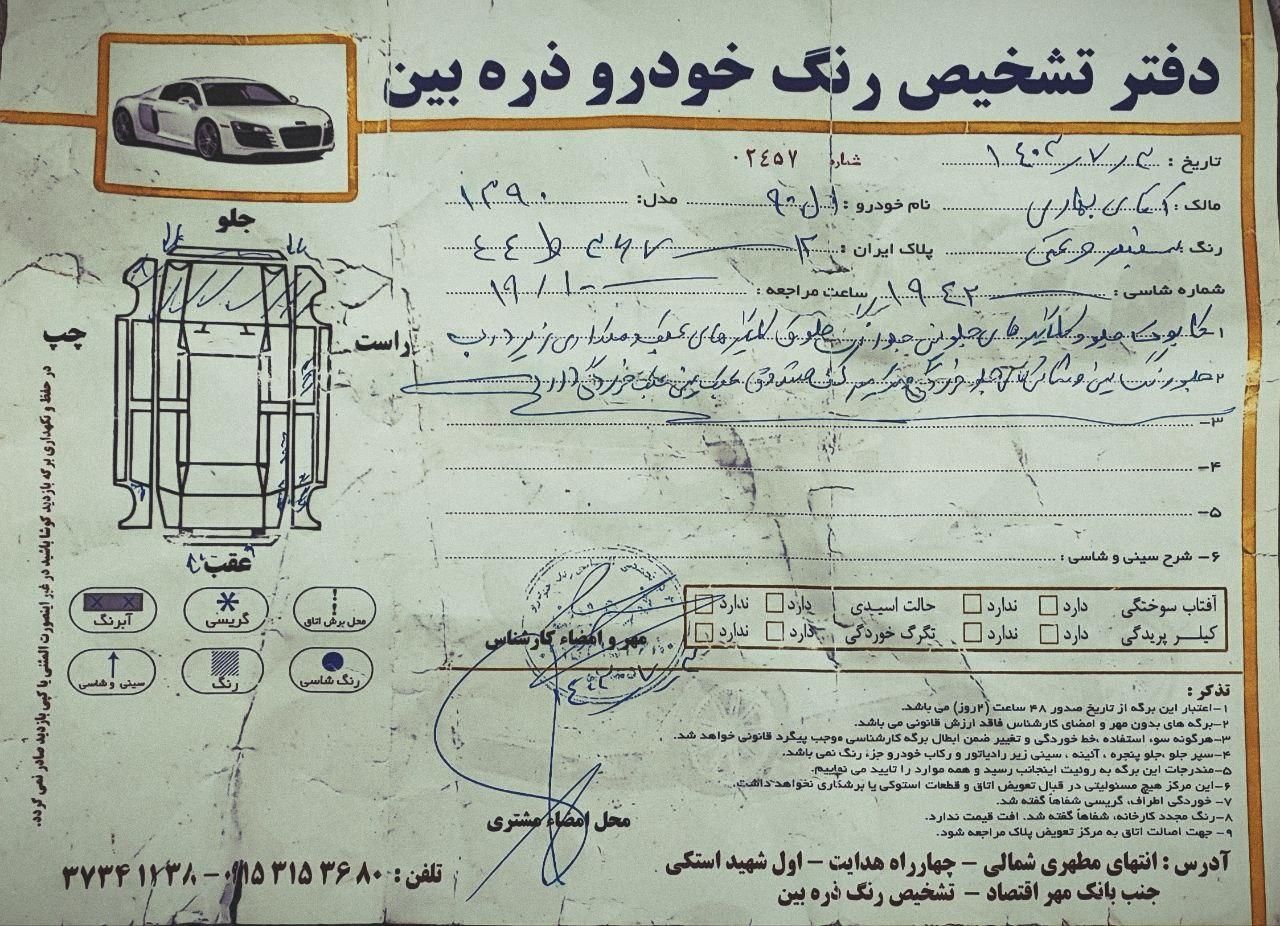 دفتر تشخیص رنگ خودرو ذره بین
تاریخ : ۱۴۰۳/۷/۳
شماره ۰۲۴۵۷
مالک : آقای بهاری
نام خودرو : ال ۹۰
مدل: ۱۳۹۰
رنگ : سفید
پلاک ایران : ۱۲
شماره شاسی : ۱۹۴۲
ساعت مراجعه : ۱۹/۱۰
۱ کاپوت جلو و گلگیر های جلو
۲ جلو رنگ
۳-
۴-
۵-
۶- شرح سینی و شاسی :
آفتاب سوختگی دارد ندارد حالت اسیدی دارد ندارد
کیلــر پریدگی دارد ندارد تگرگ خوردگی دارد ندارد
مهر و امضاء کارشناس
جلو
چپ
راست
عقب
محل برش اتاق
گریسی
آبرنگ
رنگ شاسی
رنگ
سینی و شاسی
در حفظ و نگهداری برگه بازدید کوشا باشید در غیر اینصورت المثنی یا کپی بازدید صادر نمی گردد.
تذکر :
۱-اعتبار این برگه از تاریخ صدور ۴۸ ساعت (۲روز) می باشد.
۲-برگه های بدون مهر و امضای کارشناس فاقد ارزش قانونی می باشد.
۳-هرگونه سوء استفاده ،خط خوردگی و تغییر ضمن ابطال برگه کارشناسی موجب پیگرد قانونی خواهد شد.
۴-سپر جلو ،جلو پنجره ، آئینه ، سینی زیر رادیاتور و رکاب خودرو جزء رنگ نمی باشد.
۵-مندرجات این برگه به روئیت اینجانب رسید و همه موارد را تایید می نماییم.
۶-این مرکز هیچ مسئولیتی در قبال تعویض اتاق و قطعات استوکی یا برشکاری نخواهد داشت.
۷- خوردگی اطراف، گریسی شفاهاً گفته شد.
۸-رنگ مجدد کارخانه، شفاهاً گفته شد. افت قیمت ندارد.
۹- جهت اصالت اتاق به مرکز تعویض پلاک مراجعه شود.
محل امضاء مشتری
آدرس : انتهای مطهری شمالی – چهارراه هدایت – اول شهید استکی
جنب بانک مهر اقتصاد – تشخیص رنگ ذره بین
تلفن : ۰۹۱۵ ۳۱۵ ۳۶۸۰ – ۳۷۳۴ ۱۱۳۸